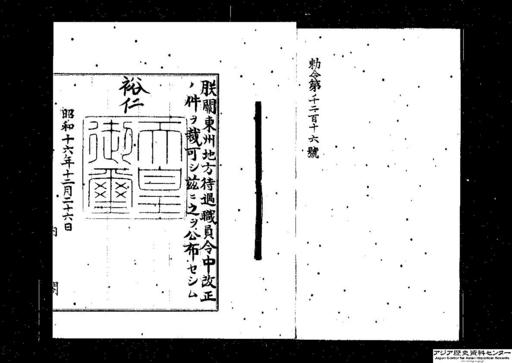 勅令第千二百十六號
朕關東州地方待遇職員令中改正
ノ件ヲ裁可シ茲ニ之ヲ公布セシム
裕仁
天皇御璽
昭和十六年十二月二十六日
内閣
アジア歴史資料センター
Japan Center for Asian Historical Records